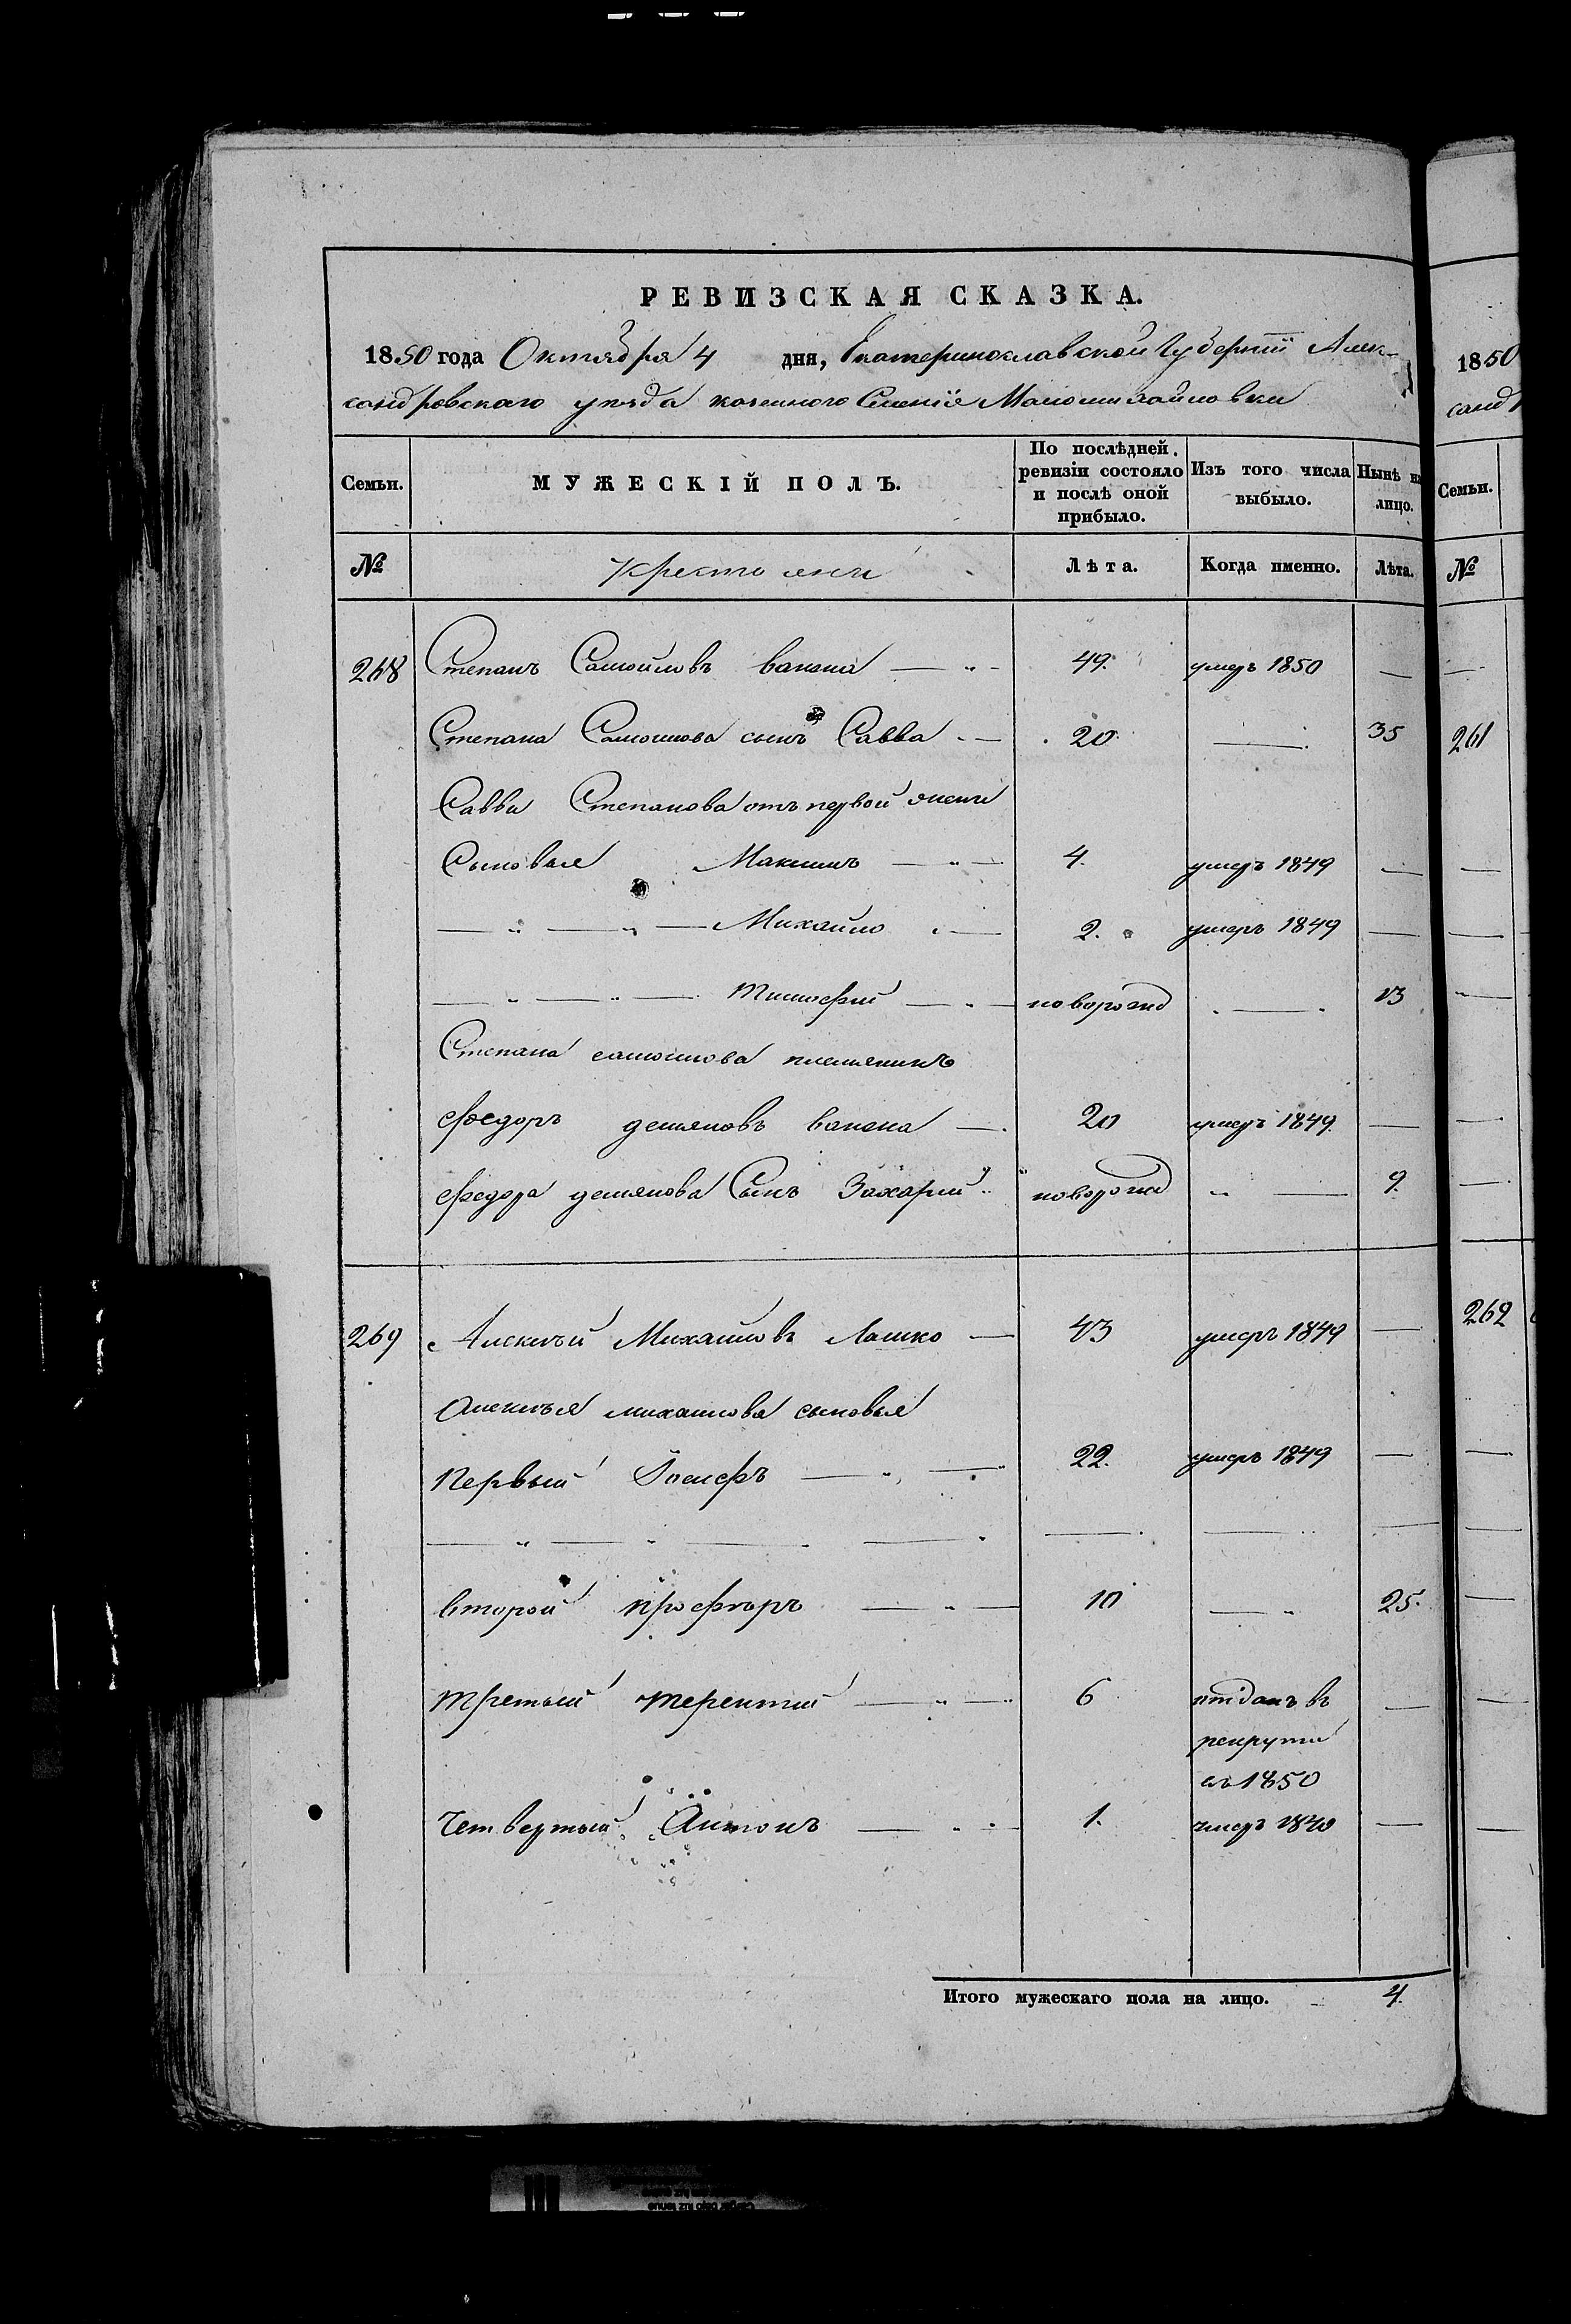 РЕВИЗСКАЯ СКАЗКА.
1850 года Октября 4 дня, Екатеринославской Губерніи Алек-
сандровского уезда казенного Селенія Маломихайловки
Семьи. МУЖЕСКІЙ ПОЛЪ. По послѣдней ревизіи состояло и послѣ оной прибыло. Изъ того числа выбыло. Нынѣ на лицо.
№ Крестьяне Лѣта. Когда именно. Лѣта.
268 Степанъ Самойловъ 49. умеръ 1850 —
Степана Самоилова сынъ Савва 20. — 35
Савви Степанова отъ первой жены
Сыновья Максимъ 4. умеръ 1849 —
Михайло 2. умеръ 1849 —
Тимофей новорожд — 13
Степана самоилова племяникъ
Федоръ демяновъ 20 умеръ 1849. —
Федора демянова Сынъ Захарий новорожд — 9.
269 Алексѣй Михайловъ Лашко 43 умеръ 1849 —
Алексѣя михаилова сыновья
Первый Іосифъ 22. умеръ 1849 —
второй Прокфиръ 10 — 25.
третий терентий 6 отданъ въ
рекруты
въ 1850
Четвертый Антонъ 1. умеръ 1840 —
Итого мужескаго пола на лицо. 4.
1850
санд
Семьи.
№
261
262